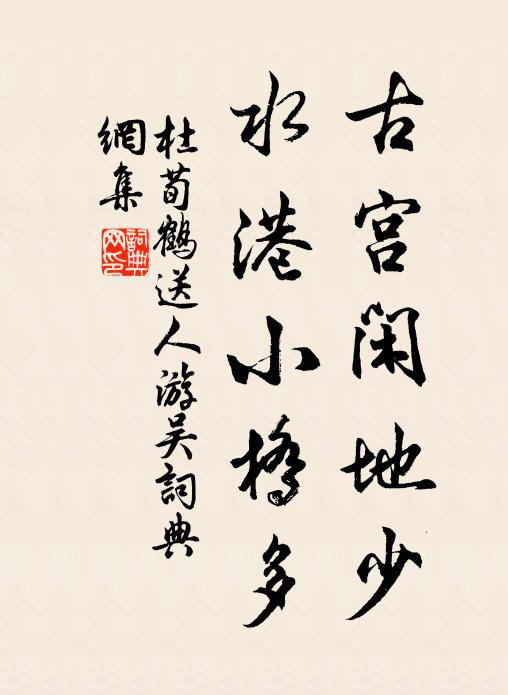 古宫閑地少
水港小橋多
杜荀鶴送人游吴詞典
網集
詞典
网印